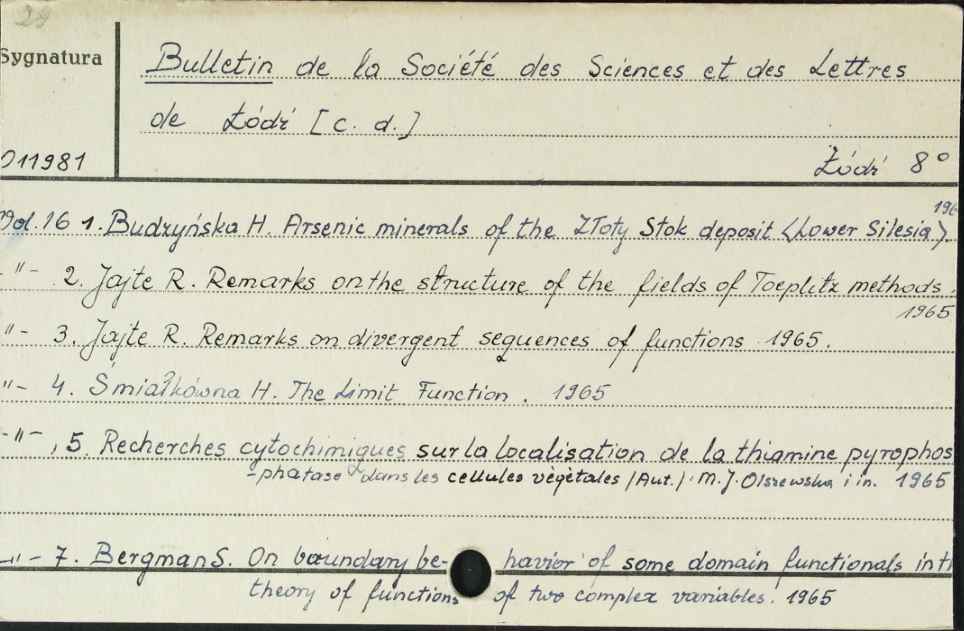 29
Sygnatura
Bulletin de la Société des Sciences et des Lettres
de Łódź [c. d.]
011981
Łódź 8°
196
Vol. 16 1. Budzyńska H. Arsenic minerals of the Złoty Stok deposit <Lower Silesia>.
-"- 2. Jajte R. Remarks on the structure of the fields of Toeplitz methods.
1965
"- 3. Jajte R. Remarks on divergent sequences of functions 1965.
"- 4. Śmiałkówna H. The Limit Function. 1965
-"-, 5. Recherches cytochimiques sur la localisation de la thiamine pyrophos
-phatase dans les cellules végétales /Aut./. M.J. Olszewska i in. 1965
-"- 7. Bergman S. On boundary be- havior of some domain functionals in th
theory of functions of two complex variables. 1965